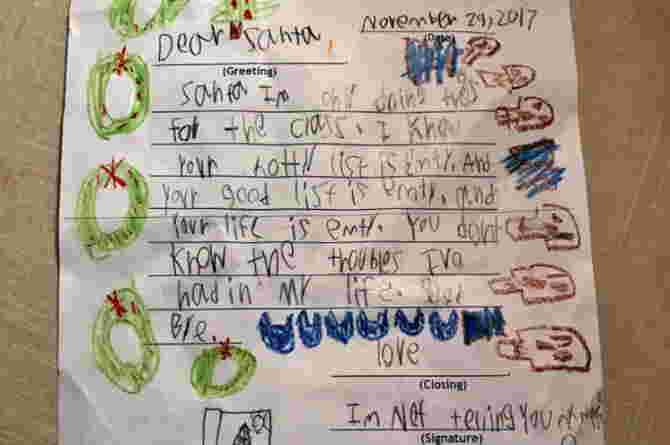 November 29, 2017
(Date)
Dear Santa,
(Greeting)
Santa Im only doing this
for the class. I know
your notty list is emty. And
your good list is ematy. and
Your life is emty. You dont
know the troubles Iva
had in my life. Good
Bye.
love
(Closing)
Im Not telling you my name
(Signature)